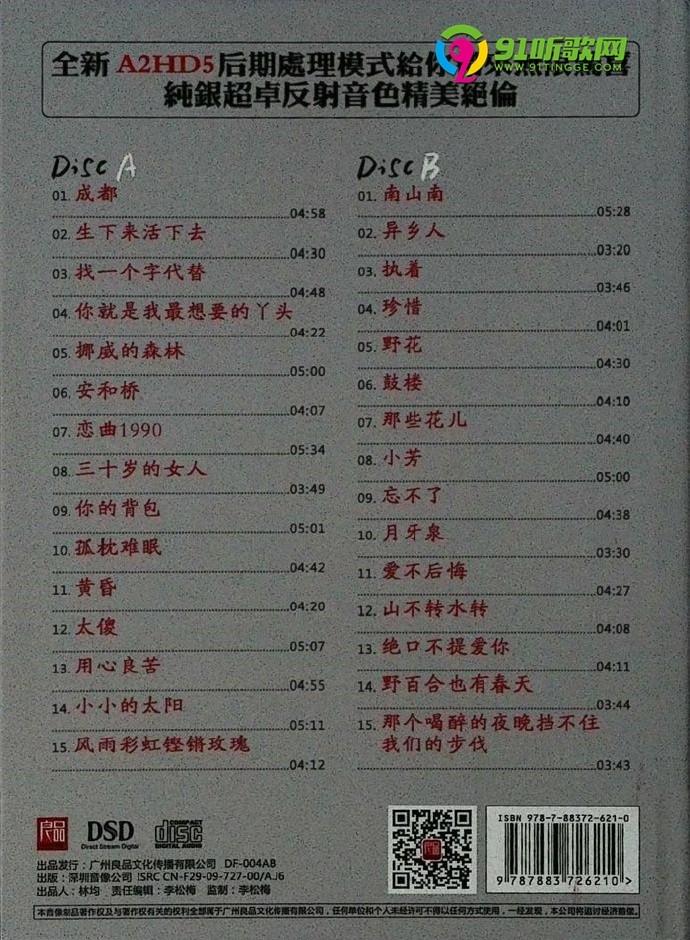 91听歌网
WWW.91TINGGE.COM
全新 A2HD5后期處理模式給你
純銀超卓反射音色精美絕倫
Disc A
01. 成都
04:58
02. 生下来活下去
04:30
03. 找一个字代替
04:48
04. 你就是我最想要的丫头
04:22
05. 挪威的森林
05:00
06. 安和桥
04:07
07. 恋曲1990
05:34
08. 三十岁的女人
03:49
09. 你的背包
05:01
10. 孤枕难眠
04:42
11. 黄昏
04:20
12. 太傻
05:07
13. 用心良苦
04:55
14. 小小的太阳
05:11
15. 风雨彩虹铿锵玫瑰
04:12
Disc B
01. 南山南
05:28
02. 异乡人
03:20
03. 执着
03:46
04. 珍惜
04:01
05. 野花
04:30
06. 鼓楼
04:10
07. 那些花儿
04:40
08. 小芳
05:00
09. 忘不了
04:38
10. 月牙泉
03:30
11. 爱不后悔
04:27
12. 山不转水转
04:08
13. 绝口不提爱你
04:11
14. 野百合也有春天
03:44
15. 那个喝醉的夜晚挡不住
我们的步伐
03:43
良品
DSD
Direct Stream Digital
COMPACT
disc
DIGITAL AUDIO
出品发行：广州良品文化传播有限公司 DF-004AB
出版：深圳音像公司 ISRC CN-F29-09-727-00/A.J6
出品人：林均 责任编辑：李松梅 监制：李松梅
ISBN 978-7-88372-621-0
9 787883 726210 >
本音像制品著作权及与著作权有关的权利全部属于广州良品文化传播有限公司，任何单位和个人未经许可不得以任何方式使用，一经发现，本公司将追讨经济赔偿。